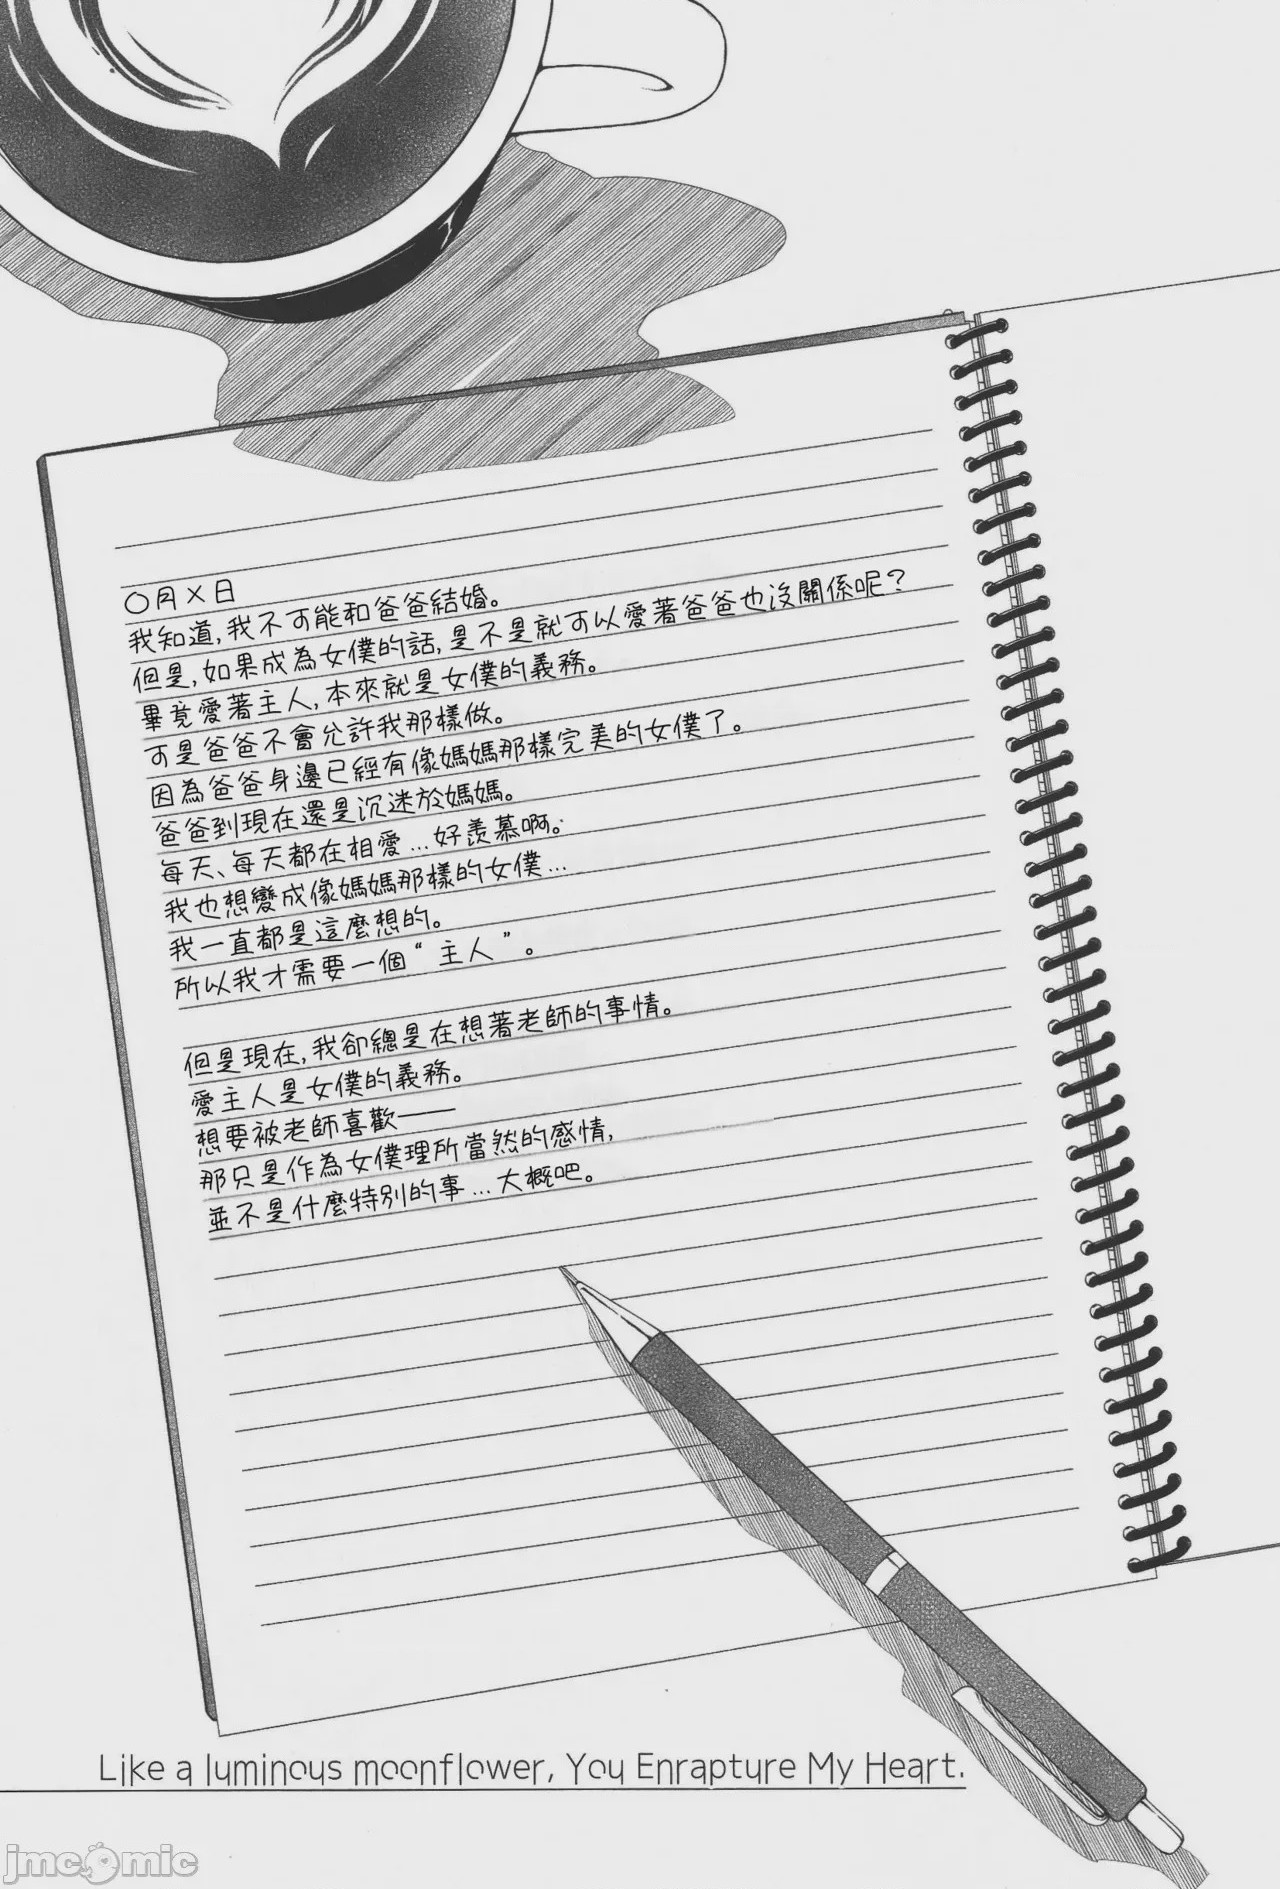 〇月×日
我知道,我不可能和爸爸結婚。
但是,如果成為女僕的話,是不是就可以愛著爸爸也沒關係呢?
畢竟愛著主人,本來就是女僕的義務。
可是爸爸不會允許我那樣做。
因為爸爸身邊已經有像媽媽那樣完美的女僕了。
爸爸到現在還是沉迷於媽媽。
每天、每天都在相愛…好羨慕啊。
我也想變成像媽媽那樣的女僕…
我一直都是這麼想的。
所以我才需要一個“主人”。
但是現在,我卻總是在想著老師的事情。
愛主人是女僕的義務。
想要被老師喜歡——
那只是作為女僕理所當然的感情,
並不是什麼特別的事…大概吧。
Like a luminous moonflower, You Enrapture My Heart.
jmcomic